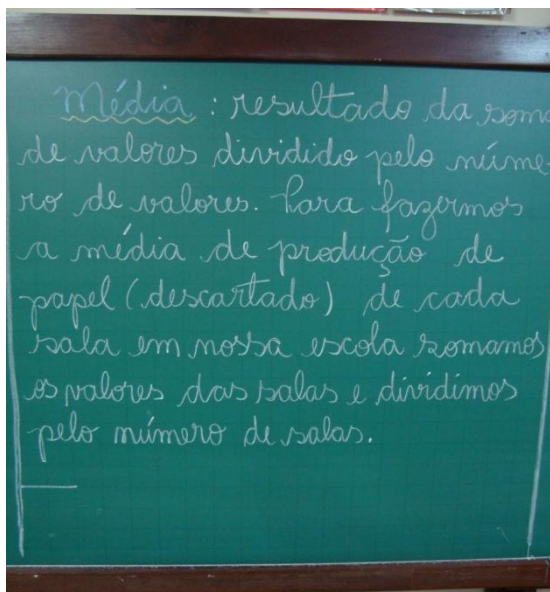 Média : resultado da soma
de valores dividido pelo núme
ro de valores. Para fazermos
a média de produção de
papel (descartado) de cada
sala em nossa escola somamos
os valores das salas e dividimos
pelo número de salas.